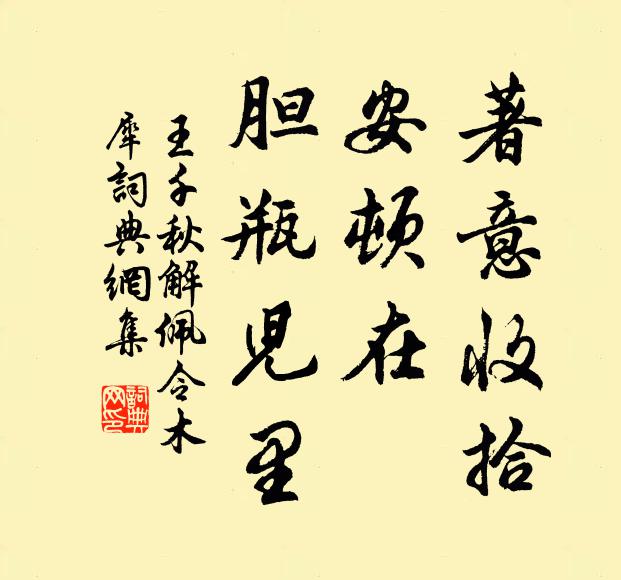 著意收拾
安顿在
胆瓶児里
王千秋解佩令木
犀詞典網集
詞典
网印